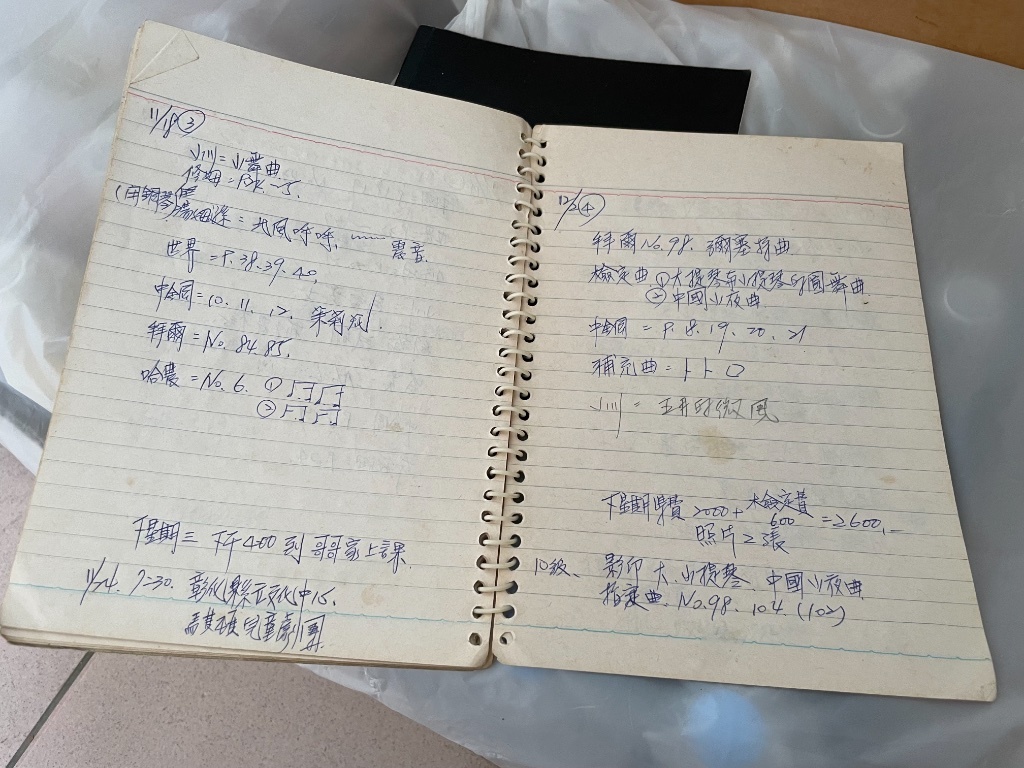 11/18 ③
小川=小舞曲
=BK-5.
(用鋼琴)
=北風呼呼,
世界=P.38.39.40,
中全圓=10. 11. 12,
拜爾=No. 84.85,
哈農=No. 6. ①
②
下星期三 下午4:00到哥哥家上課.
11/24. 7:30. 彰化縣立文化中心.
兒童劇團.
12/2 ④
拜爾No.98.
檢定曲①大提琴和小提琴的圓舞曲.
②中國小夜曲
中全圓=P. 8. 19. 20. 21
補充曲=
小川= 的微風
下星期學費2000+大檢定費600=2600.-
照片2張
10級、影印大.小提琴.中國小夜曲
指定曲.No.98. 104. (102)